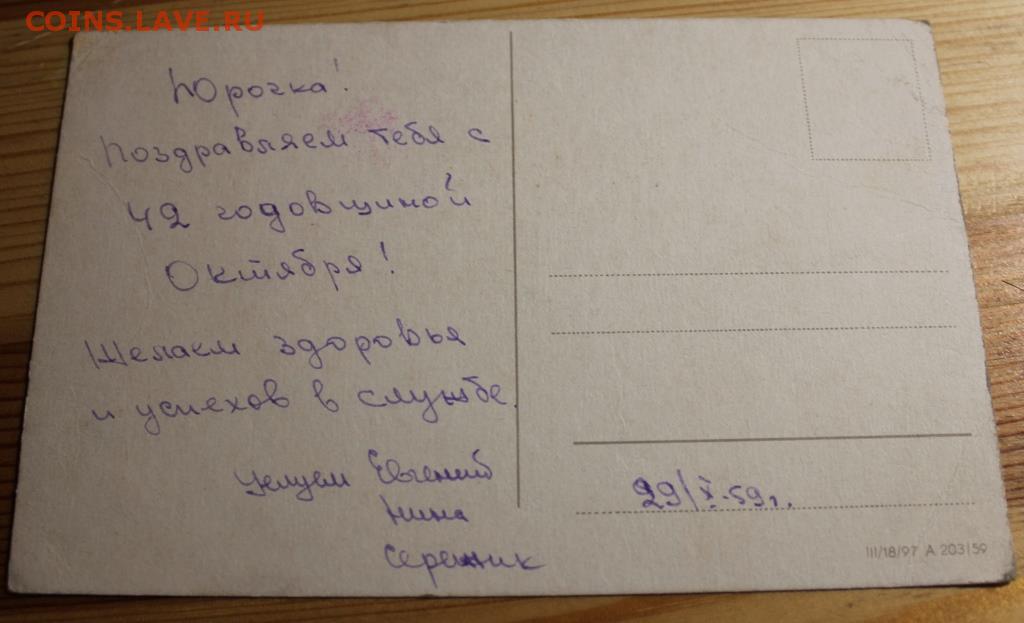 COINS.LAVE.RU
Юрочка!
Поздравляем тебя с
42 годовщиной
Октября!
Желаем здоровья
и успехов в службе.
Целуем Евгений
Нина
Сережик
29/X-59г.
III/18/97 A 203/59